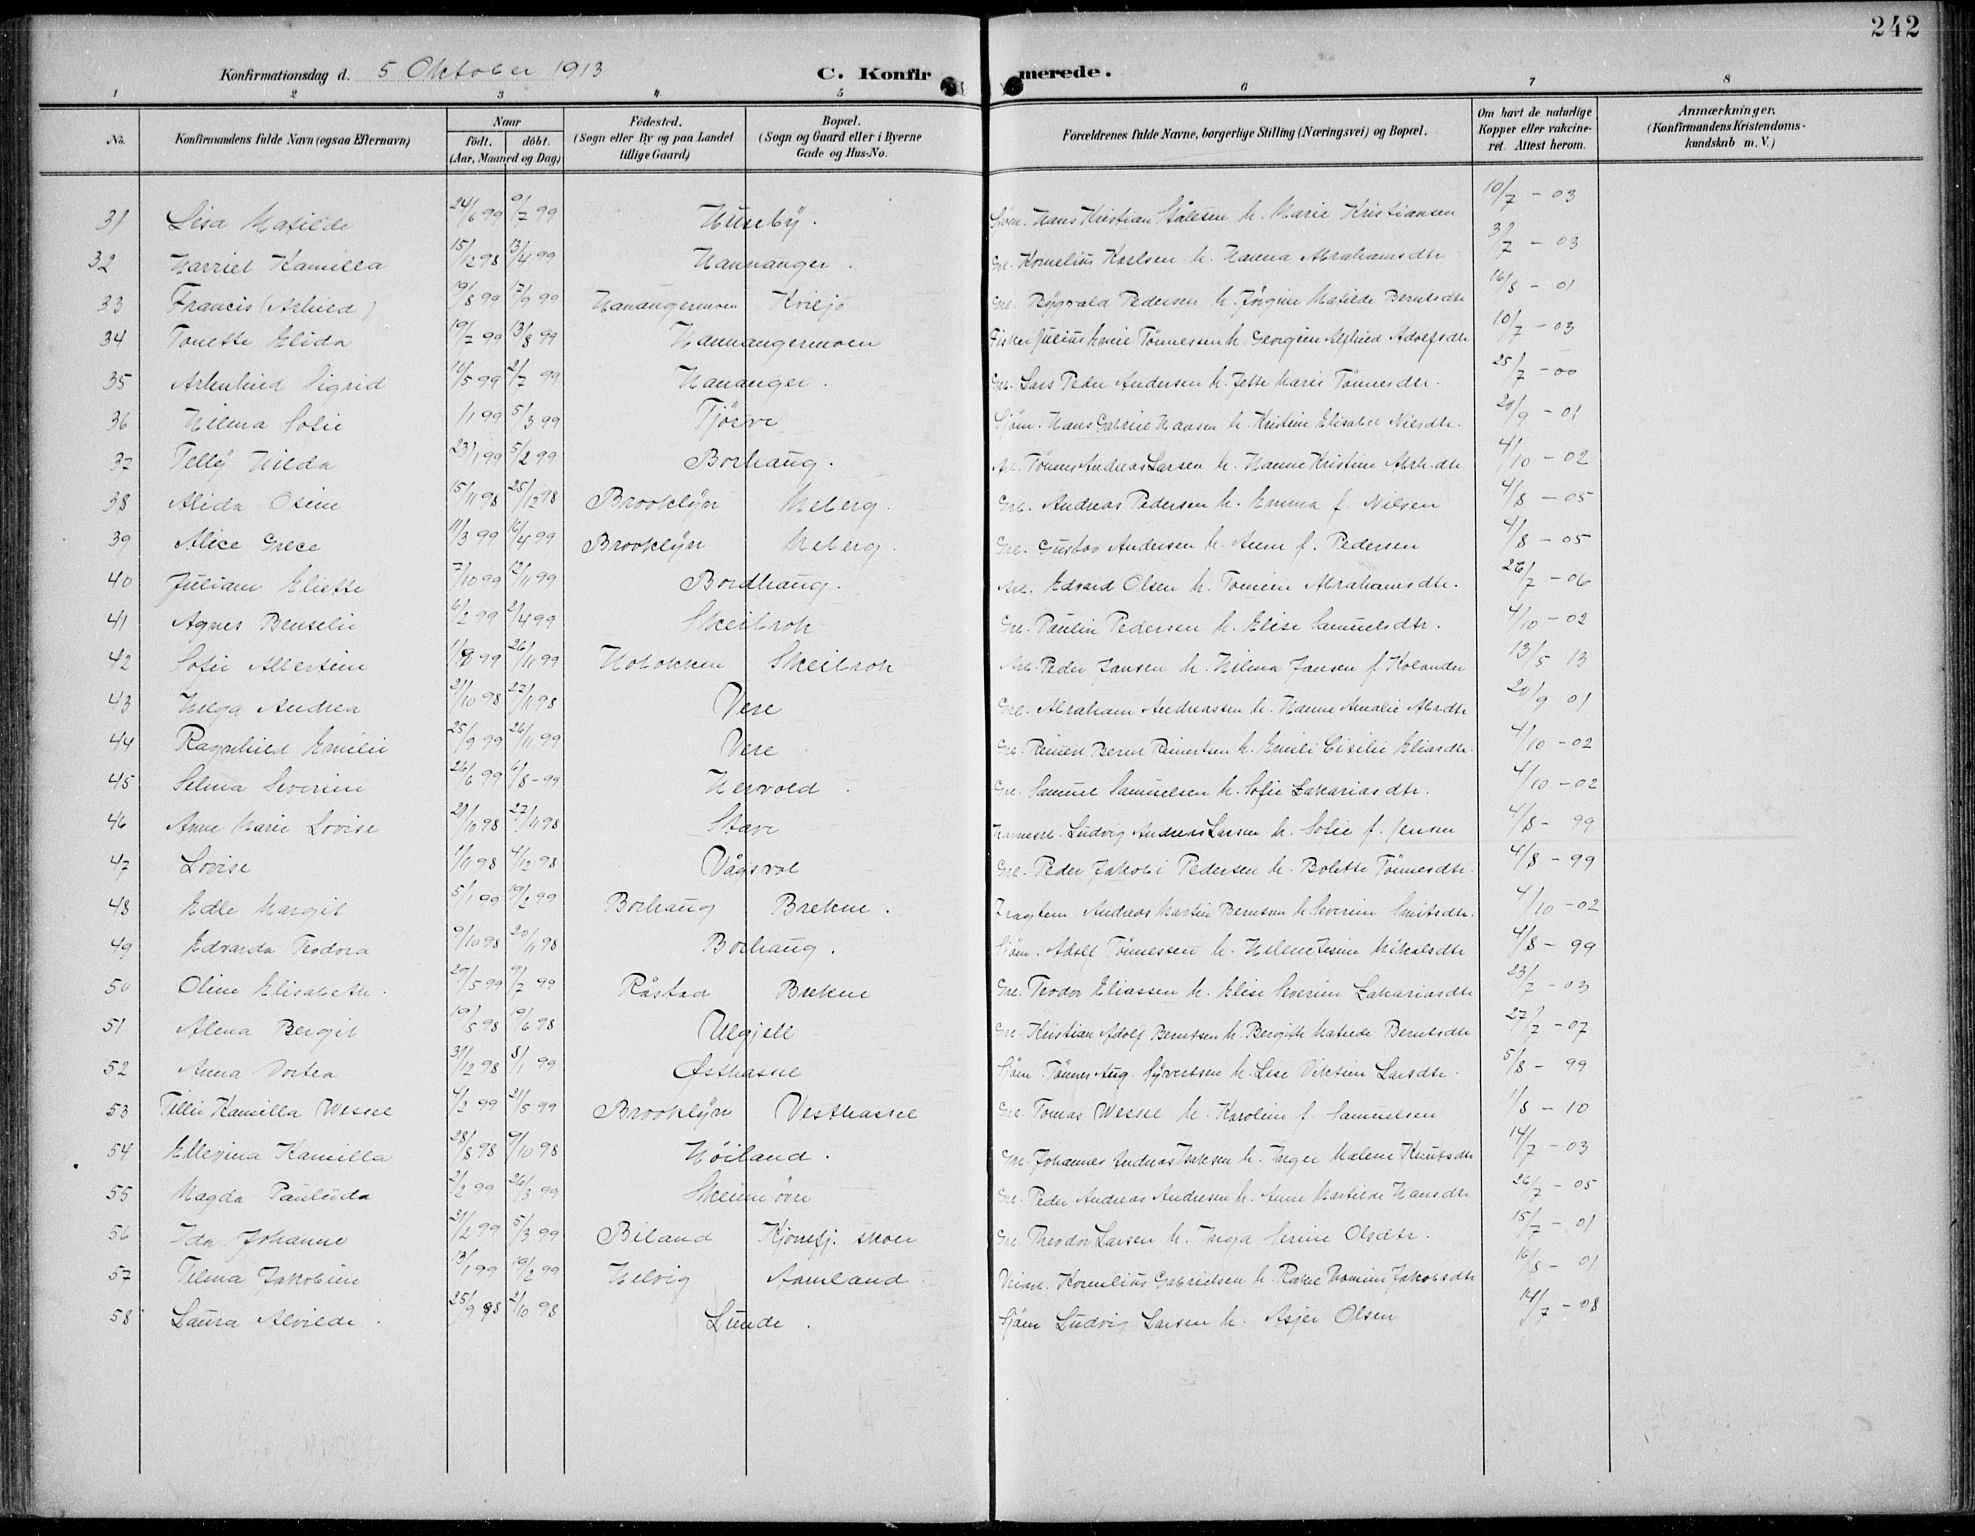 242
Konfirmationsdag d. 5 Oktober 1913 C. Konfirmerede.
1 2 3 4 5 6 7 8
No. Konfirmandens fulde Navn (ogsaa Efternavn) Naar født. døbt. (Aar, Maaned og Dag) Fødested. (Sogn eller By og paa Landet tillige Gaard) Bopæl. (Sogn og Gaard eller i Byerne Gade og Hus-No. Forældrenes fulde Navne, borgerlige Stilling (Næringsvei) og Bopæl. Om havt de naturlige Kopper eller vakcineret. Attest herom. Anmærkninger. (Konfirmandens Kristendomskundskab m. V.)
31 Lisa Matilde 24/6 99 9/7 99 Huseby. Sjøm. Hans Kristian Stålesen h. Marie Kristiansen 10/7 - 03
32 Harriet Kamilla 15/12 98 13/4 99 Hannanger. Gbr. Kornelius Karlsen h. Hanna Abrahamsdtr 3/7 - 03
33 Francis (Arhild) 19/8 99 17/9 99 Hanangermoen Kviljo Gbr. Sygvald Pedersen h. Jørgine Matilde Berntsdtr 16/8 - 01
34 Tonette Elida 19/7 99 13/8 99 Hannangermoen Fisker Julius Emil Tønnessen h. Georgine Alfhild Adolfsdtr 10/7 - 03
35 Sigrid 10/5 99 2/7 99 Hananger. Gbr. Lars Peder Andersen h. Jette Marie Tønnesdtr. 25/7 - 00
36 Hilma Sofie 1/1 99 5/3 99 Tjørve Sjøm. Hans Gabriel Hansen h. Kristine Elisabet Nilsdtr. 20/9 - 01
37 Telly Hilda 23/1 99 5/2 99 Borhaug. Arb. Tønnes Andreas Larsen h. Hanne Kristine Abrh.dtr 4/10 - 02
38 Alida Osine 15/11 98 25/12 98 Brooklyn Meberg. Gbr. Andreas Pedersen h. Emma f. Nilsen 4/8 - 05
39 Alice Grece 11/3 99 16/4 99 Brooklyn Meberg. Gbr. Gustav Andersen h. Anne f. Pedersen 4/8 - 05
40 Juliane Eliette 7/10 99 12/11 99 Bordhaug. Arb. Edvard Olsen h. Tomine Abrahamsdtr. 26/7 - 06
41 Agnes Benselie 6/2 99 2/4 99 Skeibrok Gbr. Paulin Pedersen h. Elise Samuelsdtr. 4/10 - 02
42 Sofie Albertine 99 26/11 99 Hobokken Skeibrok Arb. Peder Jansen h. Hilma Jansen f. Kolander 13/5 13
43 Helga Andrea 21/10 98 27/11 98 Vere Gbr. Abraham Andreassen h. Hanne Amalie Abrdtr 20/9 01
44 Ragnhild Emilie 25/9 99 26/11 99 Vere Gbr. Reinert Bernt Reinertsen h. Emilie Cisilie Eliasdtr. 4/10 - 02
45 Selma Severine 26/6 99 6/8 - 99 Hervold. Gbr. Samuel Samuelsen h. Sofie Zakariasdtr. 4/10 - 02
46 Anne Marie Lovise 29/10 98 27/11 98 Stave Ludvig Andreas Larsen h. Sofie f. Jensen 4/8 - 99
47 Lovise 1/11 98 4/12 98 Vågsvol Gbr. Peder Jakob Pedersen h. Bolette Tønnesdtr. 4/8 - 99
48 Edle Margit 5/1 99 19/2 99 Borhaug Brekne. Andreas Martin Berntsen h. Severine Smitsdtr. 4/10 - 02
49 Edvarda Teodora 9/10 98 20/11 98 Borhaug. Sjøm. Adolf Tønnessen h. Helene Lesine Mikalsdtr 4/8 - 99
50 Oline Elisabeth. 29/5 99 9/7 99 Råstad Brekne Gbr. Teodor Eliassen h. Elise Severine Zakariasdtr 23/7 - 03
51 Alma Bergit 19/5 98 19/6 98 Ulgjell Gbr. Kristian Adolf Berntsen h. Bergitte Matilde Berntsdtr 27/7 - 07
52 Anna Dortea 31/12 98 8/1 99 Østhassel Sjøm. Tønnes Aug. Syvertsen h. Lise Viktine Larsdtr. 5/8 - 99
53 Tillie Kamilla Wessel 4/2 99 21/5 99 Brooklyn Vesthassel Gbr. Tomas Wessel h. Karoline f. Samuelsen 1/8 - 10
54 Ellevina Kamilla 28/8 98 9/10 98 Høiland. Gbr. Johannes Andreas Isaksen h. Inger Malene Knutsdtr 14/7 - 03
55 Magda Paulida 2/2 99 26/3 99 Skeime øvre Gbr. Peder Andreas Andresen h. Anne Martilde Hansdtr 26/7 - 05
56 Ida Johanne 21/2 99 5/3 99 Biland Kjønsfj. skoer Gbr. Theodor Larsen h. Inga Serine Olsdtr. 15/7 - 01
57 Tilma Jakobine 13/1 99 19/2 99 Helvig Aamland Kornelius Gabrielsen h. Rakel Tomine Jakobsdtr 16/8 - 01
58 Laura Alvilde. 25/9 98 2/10 98 Lunde. Sjøm Ludvig Larsen h. Asjer Olsen 14/7 - 08